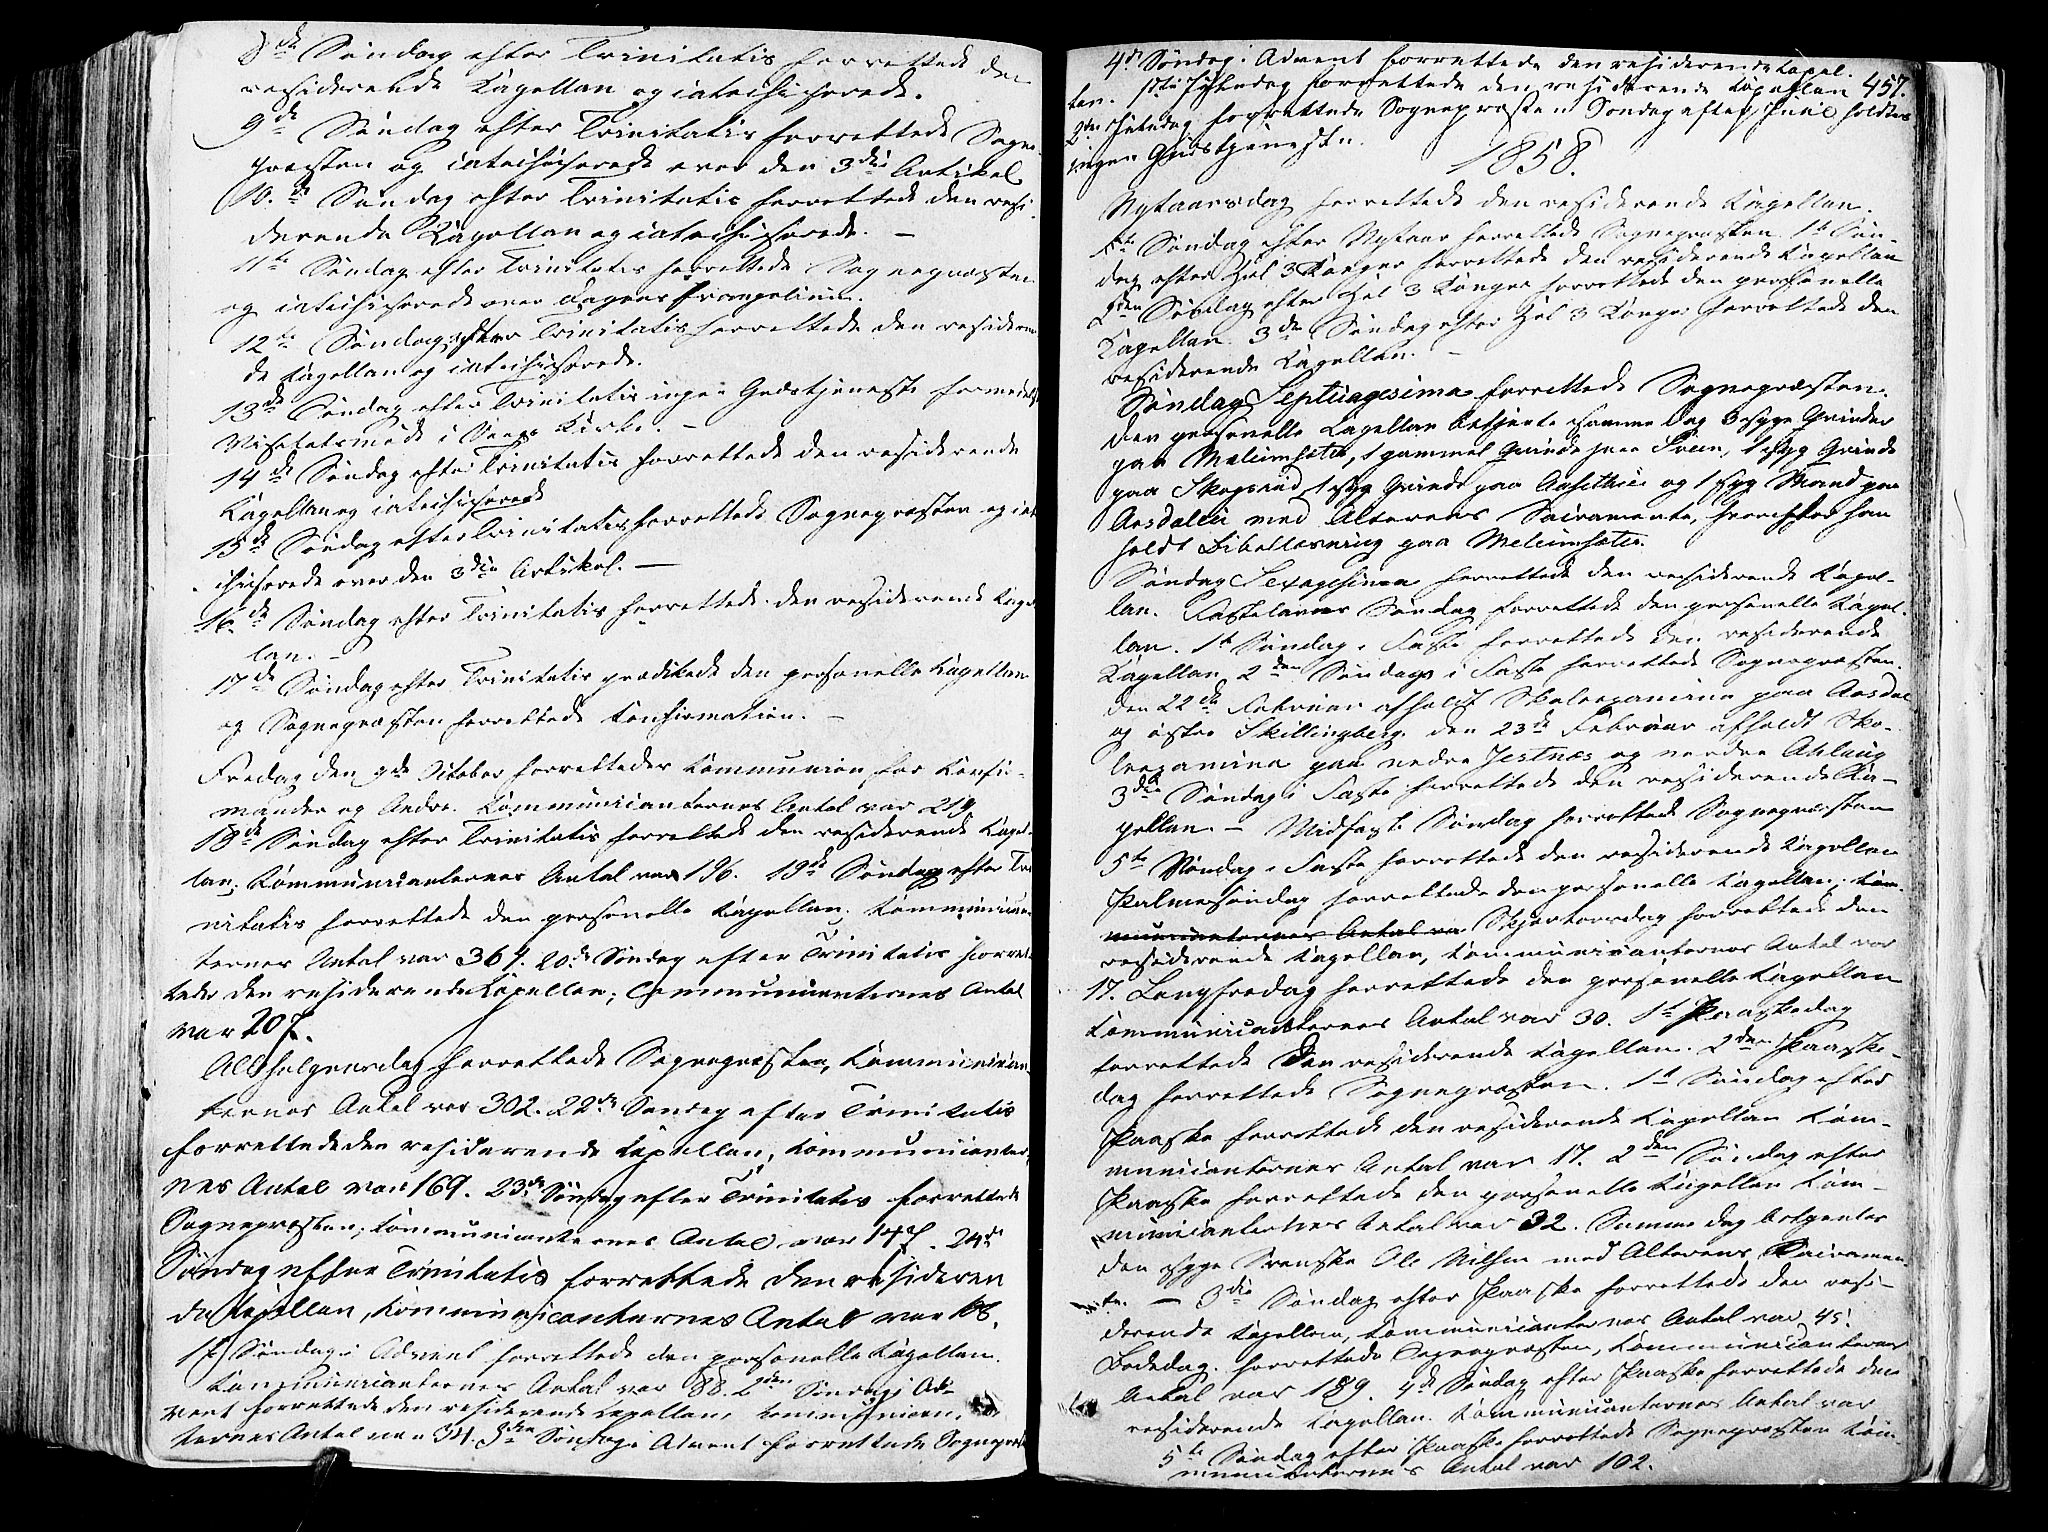 8de Søndag efter Trinitatis forrettede den
residerende Kapellan og catechiserede.
9de Søndag efter Trinitatis forrettede Sogne-
præsten og catechiserede over den 3die Artikel
10de Søndag efter Trinitatis forrettede den resi-
derende Kapellan og catechiserede. —
11te Søndag efter Trinitatis forrettede Sognepræsten
og catechiserede over Dagens Evangelium.
12te Søndag efter Trinitatis forrettede den resideren
de Kapellan og catechiserede.
13de Søndag efter Trinitatis ingen Gudstjeneste formedelst
Visitatsmøde i Kirke. —
14de Søndag efter Trinitatis forrettede den residerende
Kapellan og catechiserede
15de Søndag efter Trinitatis forrettede Sognepræsten og cate
chiserede over den 3die Artikel. —
16de Søndag efter Trinitatis forrettede den residerende Kapel
lan. —
17de Søndag efter Trinitatis prædikede den personelle Kapellan
og Sognepræsten forrettede Confirmation. —
Fredag den 9de October forrettedes Communion for Confir-
mander og Andre. Kommunicanternes Antal var 219
18de Søndag efter Trinitatis forrettede den residerende Kapel-
lan; Kommunicanternes Antal var 196. 19de Søndag efter Tri
nitatis forrettede den personelle Kapellan; Kommunican-
ternes Antal var 367. 20de Søndag efter Trinitatis forret
tede den residerende Kapellan; Communicanternes Antal
var 207.
Allehelgensdag forrettede Sognepræsten, Kommunican-
ternes Antal var 302. 22de Søndag efter Trinitatis
forrettede den residerende Kapellan, Kommunicanter-
nes Antal var 169. 23de Søndag efter Trinitatis forrettede
Sognepræsten; Communicanternes Antal var 147. 24de
Søndag efter Trinitatis forrettede den resideren
de Kapellan, Communicanternes Antal var
1ste Søndag i Advent forrettede den personelle Kapellan.
Communicanternes Antal var 88. 2den Søndag i Ad-
vent forrettede den residerende Kapellan, Communican-
ternes Antal var 34. 3die Søndag i Advent forrettede Sognepræ
4de Søndag i Advent forrettede den residerende Capel-
lan. 1ste Juledag forrettede den residerende Kapellan 457.
2den Juledag forrettede Sognepræsten Søndag efter Juul holdtes
ingen Gudstjeneste.
1858.
Nytaarsdag forrettede den residerende Kapellan.
Søndag efter Nytaar forrettede Sognepræsten. 1ste Søn-
dag efter Hel 3 Konger forrettede den residerende Kapellan
2den Søndag efter Hel 3 Konger forrettede den personelle
Kapellan 3die Søndag efter Hel 3 Konger forrettede den
residerende Kapellan. —
Søndag Septuagesima forrettede Sognepræsten.
Den personelle Kapellan betjente samme Dag 3 syge Qvinder
paa Melumsæter, 1 gammel Qvinde paa 1 syg Qvinde
paa Skogsrud, 1 syg Qvinde paa og 1 syg Mand paa
Aasdalen med Alterens Sacramente, hvorefter han
holdt Bibellæsning paa Melumsæter.
Søndag Sexagesima forrettede den residerende Kapel-
lan. Fastelavns Søndag forrettede den personelle Kapel-
lan. 1ste Søndag i Faste forrettede den residerende
Kapellan 2den Søndag i Faste forrettede Sognepræsten.
Den 22de Februar afholdt Skoleexamina paa Aasdal
og østre Skillingberg. den 23de Februar afholdt Sko-
leexamina paa nedre Jestnæs og nordre
3die Søndag i Faste forrettede den residerende Ka-
pellan. — Midfaste Søndag forrettede Sognepræsten
5te Søndag i Faste forrettede den residerende Kapellan
Palmesøndag forrettede den personelle Kapellan; Kom-
municanternes Antal va Skjærtorsdag forrettede den
residerende Kapellan, Communicanternes Antal var
17. Langfredag forrettede den personelle Kapellan
Communicanternes Antal var 30. 1ste Paaskedag
forrettede den residerende Kapellan. 2den Paaske-
dag forrettede Sognepræsten. 1ste Søndag efter
Paaske forrettede den residerende Kapellan Kom-
municanternes Antal var 17. 2den Søndag efter
Paaske forrettede den personelle Kapellan Kom-
municanternes Antal var 32. Samme dag betjentes
den syge Svenske Ole Nilsen med Alterens Sacramen-
te. — 3die Søndag efter Paaske forrettede den resi-
derende Kapellan, Communicanternes Antal var 45.
Bededag forrettede Sognepræsten, Communicanternes
Antal var 189. 4de Søndag efter Paaske forrettede den
residerende Kapellan. Communicanternes Antal var
5te Søndag efter Paaske forrettede Sognepræsten Kom-
municanternes Antal var 102.